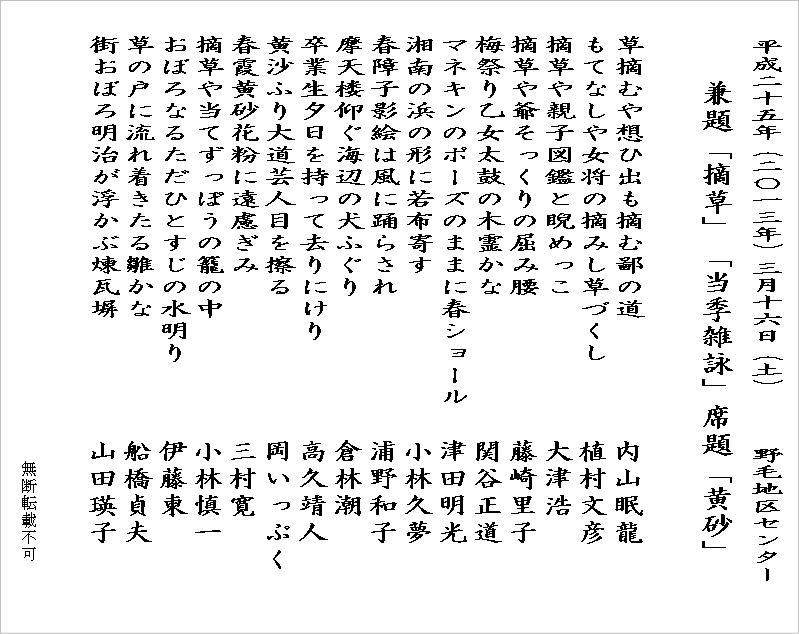 平成二十五年(二〇一三年)三月十六日(土) 野毛地区センター
兼題「摘草」「当季雑詠」席題「黄砂」
草摘むや想ひ出も摘む鄙の道 内山眠龍
もてなしや女将の摘みし草づくし 植村文彦
摘草や親子図鑑と睨めっこ 大津浩
摘草や爺そっくりの屈み腰 藤崎里子
梅祭り乙女太鼓の木霊かな 関谷正道
マネキンのポーズのままに春ショール 津田明光
湘南の浜の形に若布寄す 小林久夢
春障子影絵は風に踊らされ 浦野和子
摩天楼仰ぐ海辺の犬ふぐり 倉林潮
卒業生夕日を持って去りにけり 高久靖人
黄沙ふり大道芸人目を擦る 岡いっぷく
春霞黄砂花粉に遠慮ぎみ 三村寛
摘草や当てずっぽうの籠の中 小林慎一
おぼろなるただひとすじの水明り 伊藤東
草の戸に流れ着きたる雛かな 船橋貞夫
街おぼろ明治が浮かぶ煉瓦塀 山田瑛子
無断転載不可